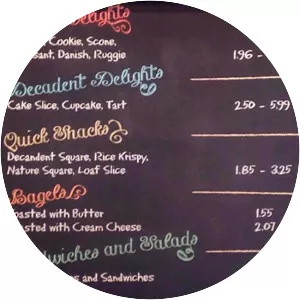 Delights
Cookie, Scone,
Danish, Ruggie 1.96 -
Decadent Delights
Cake Slice, Cupcake, Tart 2.50 - 5.99
Quick Snacks
Decandent Square, Rice Krispy,
Nature Square, Loaf Slice 1.85 - 3.25
Bagels
with Butter 1.55
with Cream Cheese 2.07
and Salads
and Sandwiches